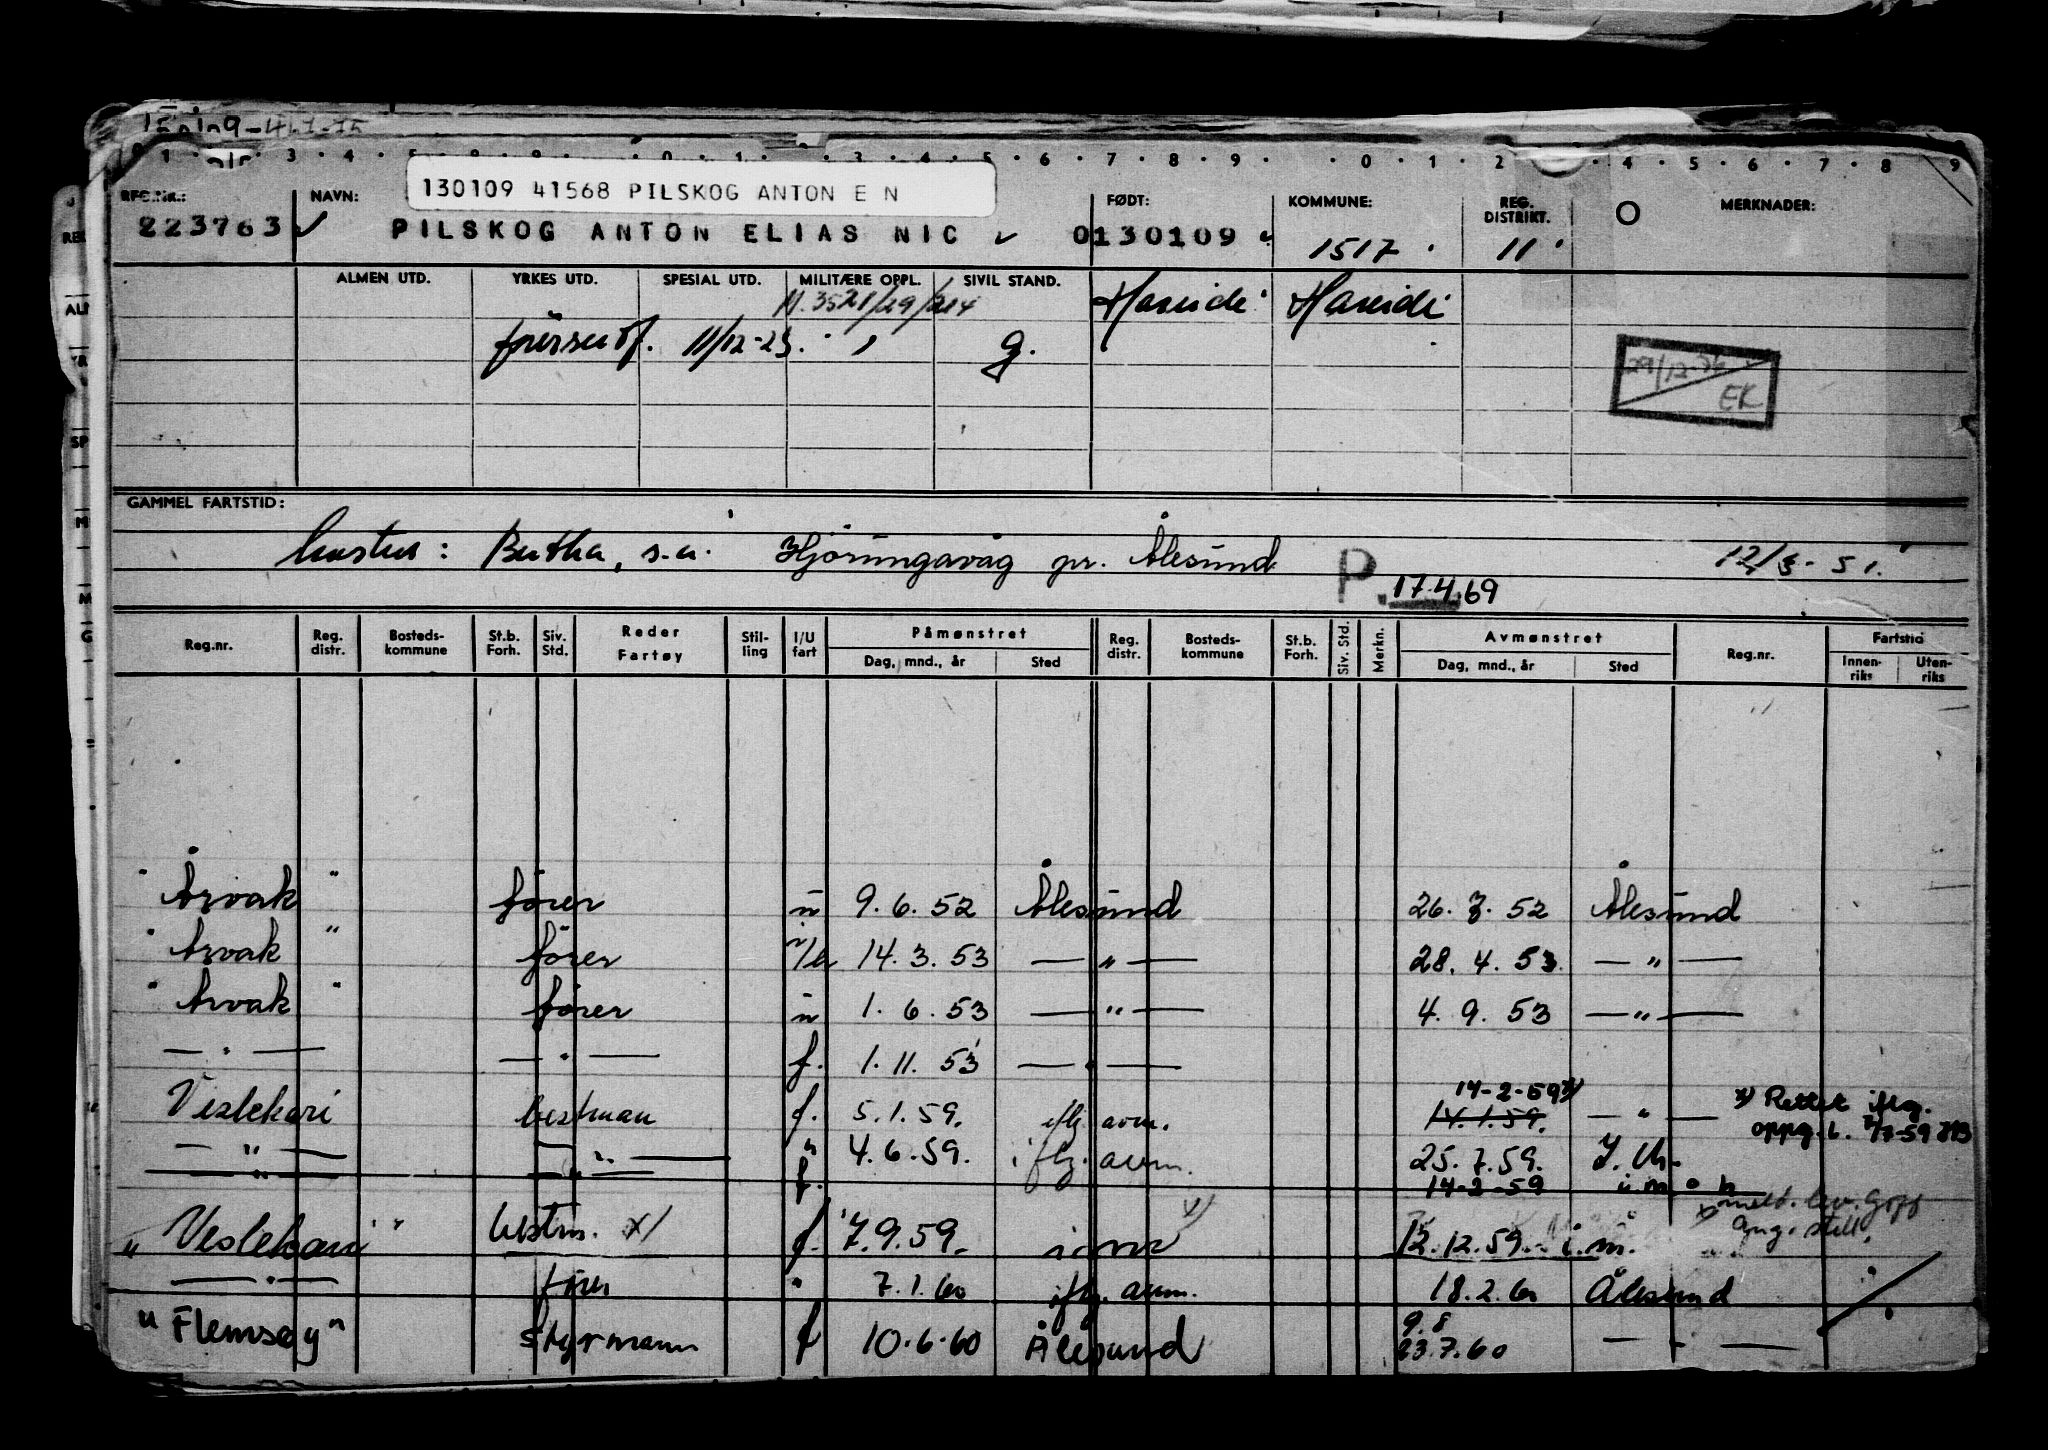 1 2 3 4 5 6 7 8 9 0 1 2 3 4 5 6 7 8 9
130109 41568 PILSKOG ANTON E N
REG.NR.: NAVN: FØDT: KOMMUNE: REG. DISTRIKT. MERKNADER:
223763 PILSKOG ANTON ELIAS NIC 0130109 1517 11
ALMEN UTD. YRKES UTD. SPESIAL UTD. MILITÆRE OPPL. SIVIL STAND.
Hareide Hareide
11/12-23. g.
29/12-76
EK
GAMMEL FARTSTID:
hustru: Bertha, s.a. Hjørungavåg pr. Ålesund 12/3-51.
P. 17.4.69
Reg.nr. Reg. distr. Bosteds-kommune St.b. Forh. Siv. Std. Reder Fartøy Stil-ling I/U fart Påmønstret Dag, mnd., år Sted Reg. distr. Bosteds-kommune St.b. Forh. Siv. Std. Merkn. Avmønstret Dag, mnd., år Sted Reg.nr. Fartstid Innen-riks Uten-riks
"Årvak" fører u 9.6.52 Ålesund 26.7.52 Ålesund
"Årvak" fører 14.3.53 — " — 28.4.53 — " —
"Årvak" fører u 1.6.53 — " — 4.9.53 — " —
— " — — " — f. 1.11.53 — " —
14-2-59 x)
Veslekari bestman f. 5.1.59. iflg. avm. 14.1.59. — " — x) Rettet iflg.
— " — — " — " 4.6.59. iflg. avm. 25.7.59.
— " — — " — f. 14-2-59
"Veslekari" bestm. x/ f. 7.9.59. 12.12.59. i.m.
— " — fører " 7.1.60 iflg. avm. 18.2.60 Ålesund
9.8
"Flemsøy" styrmann f 10.6.60 Ålesund 23.7.60 — " —